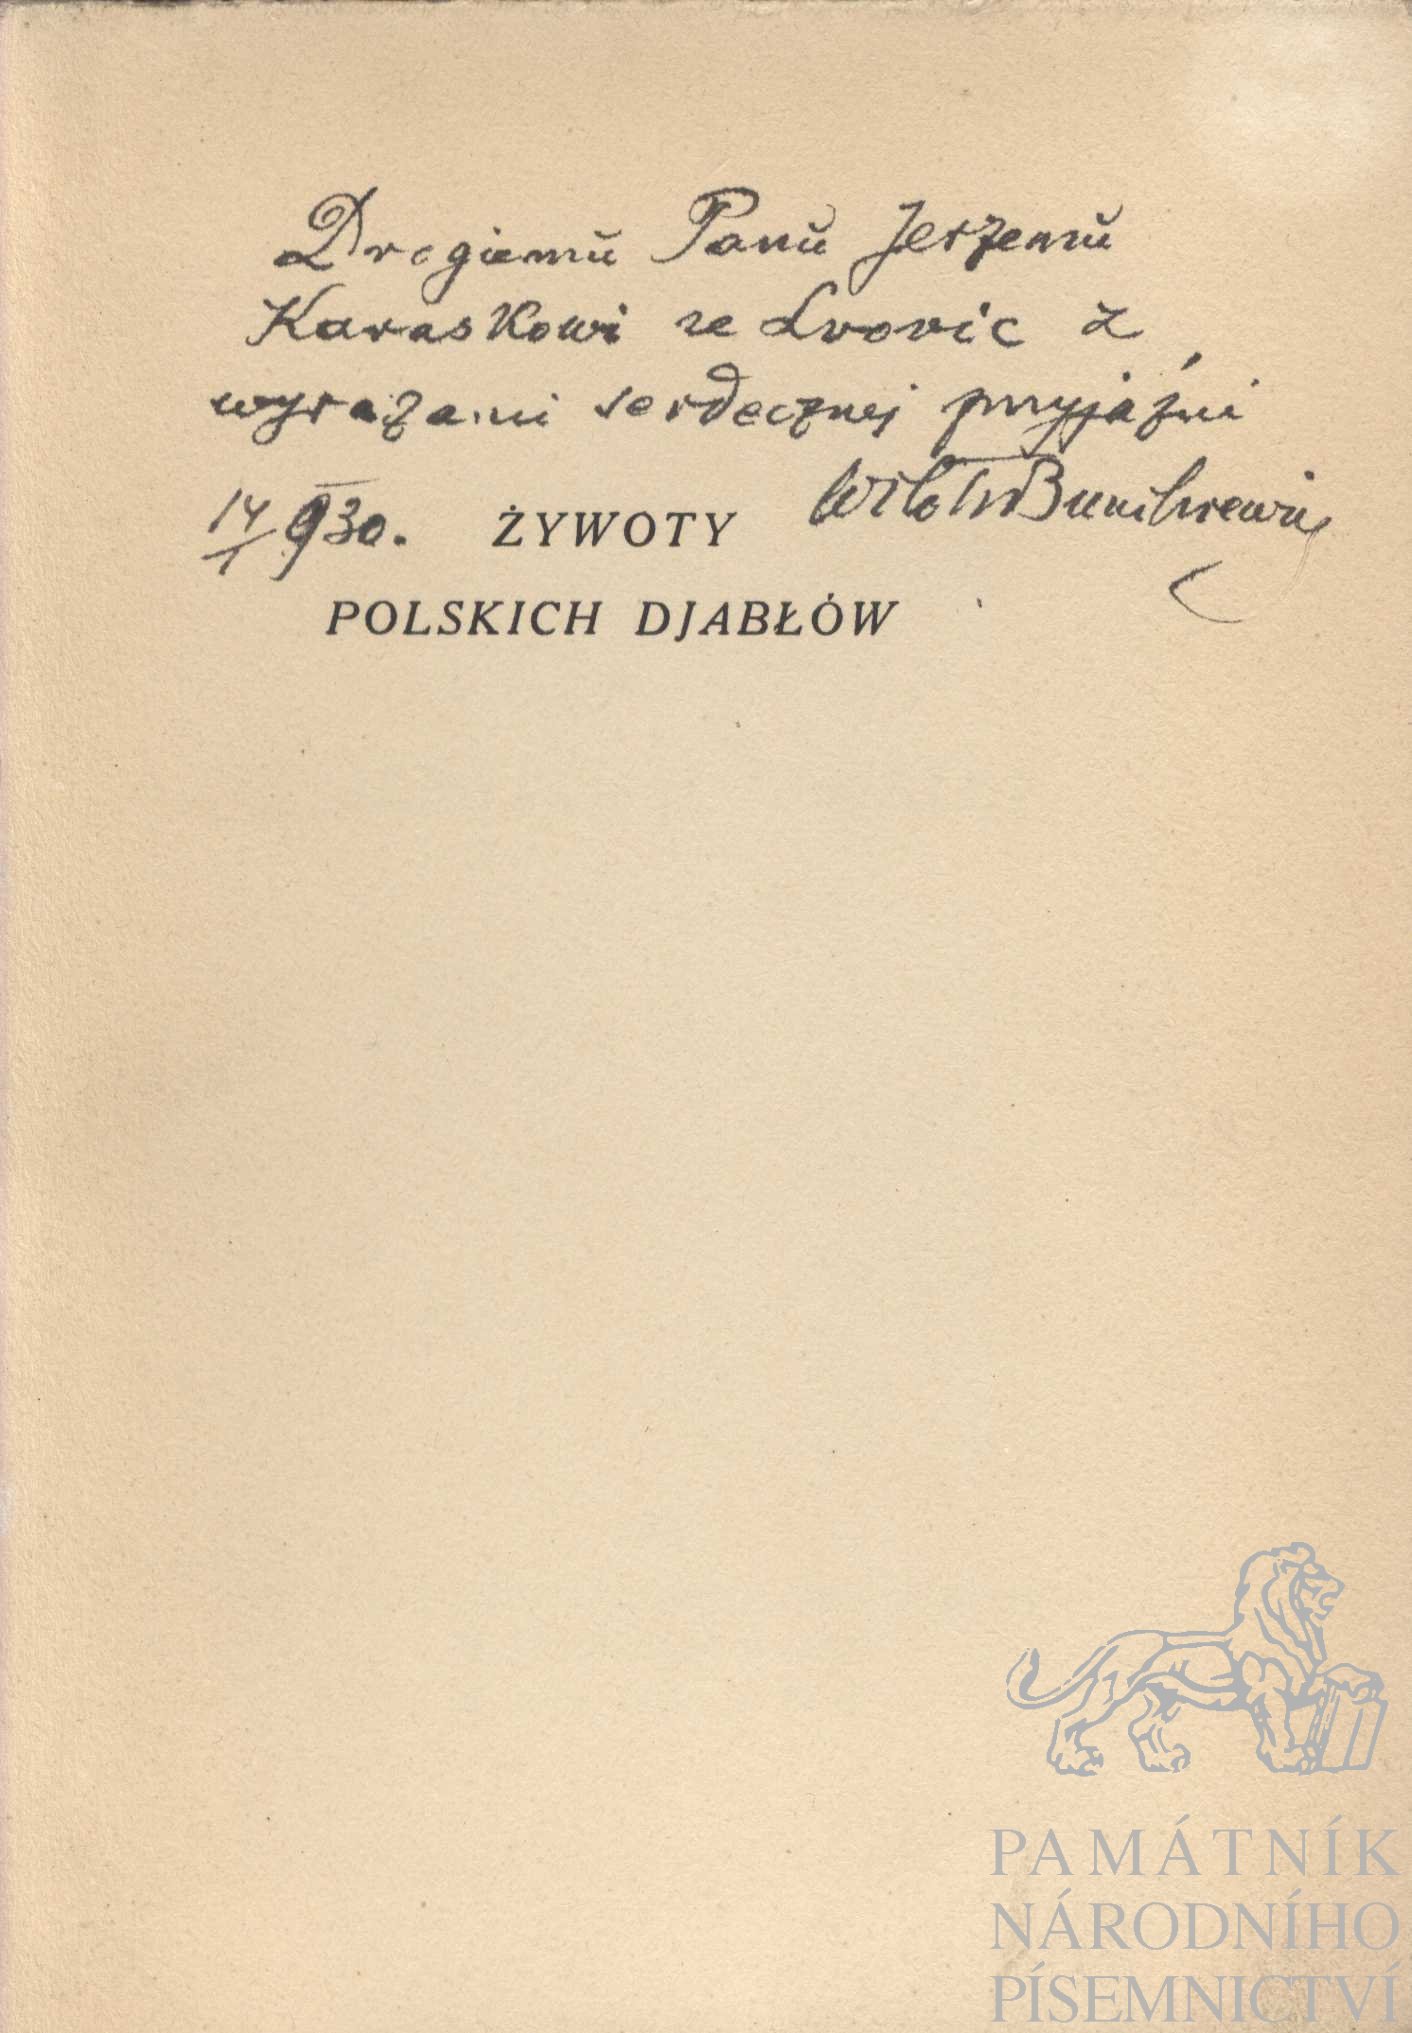 Drogiemu Panu Jerzemu
Karaskowi ze Lvovic z
wyrazami serdecznej przyjaźni
Witold Bunikiewicz
14/1 930.
ŻYWOTY
POLSKICH DJABŁÓW
PAMÁTNÍK
NÁRODNÍHO
PÍSEMNICTVÍ